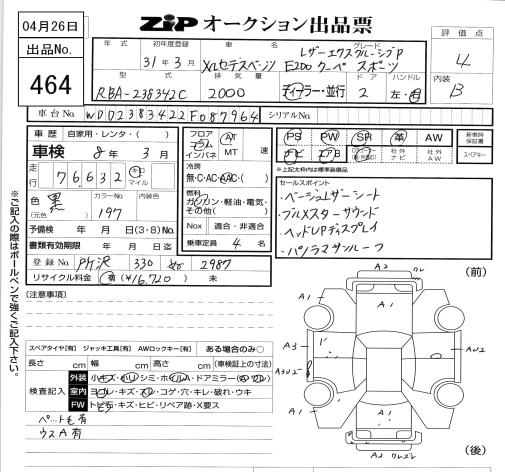 04月26日
出品No.
464
ZIPオークション出品票
評価点
4
内装
B
年式 初年度登録 車名 グレード
31年3月 メルセデスベンツ レザーエクスクルーシブP
E200クーペ スポーツ
型式 排気量 ドア ハンドル
RBA-238342C 2000 ディーラー・並行 2 左・右
車台No. WDD2383422F087964 シリアルNo.
車歴 自家用・レンタ・( )
車検 8年3月
走行 76,632 キロ マイル
色 黒 (元色) カラーNo. 197 内装色
予備検 年 月 日(3・8)No.
書類有効期限 年 月 日迄
登録No 所沢 330 ぬ 2987
リサイクル料金 有(¥16,720) 未
フロア コラム インパネ
AT MT 速
冷房
無・C・AC・AAC・( )
燃料
ガソリン・軽油・電気・その他( )
Nox 適合・非適合
乗車定員 4名
PS PW SR 革 AW 新車時保証書
ナビ エアB 社外ナビ 社外AW スペアキー
*上記太枠内は標準装備品
セールスポイント
・ベージュレザーシート
・ブルメスターサウンド
・ヘッドUPディスプレイ
・パノラマサンルーフ
※ご記入の際はボールペンで強くご記入下さい。
[注意事項]
スペアタイヤ[有] ジャッキ工具[有] AWロックキー[有] ある場合のみ○
長さ cm 幅 cm 高さ cm (車検証上の寸法)
検査記入
外装 小キズ・小凹・シミ・ホイルA・ドアミラー(キズ・ワレ)
室内 ヨゴレ・キズ・スリ・コゲ・穴・キレ・破れ・ウキ
FW トビ石・キズ・ヒビ・リペア跡・X要ス
ペット毛有
ウスA有
(前)
A2
A1
A1
A1
A3
A1
A3U2
A1
A1
A2
(後)